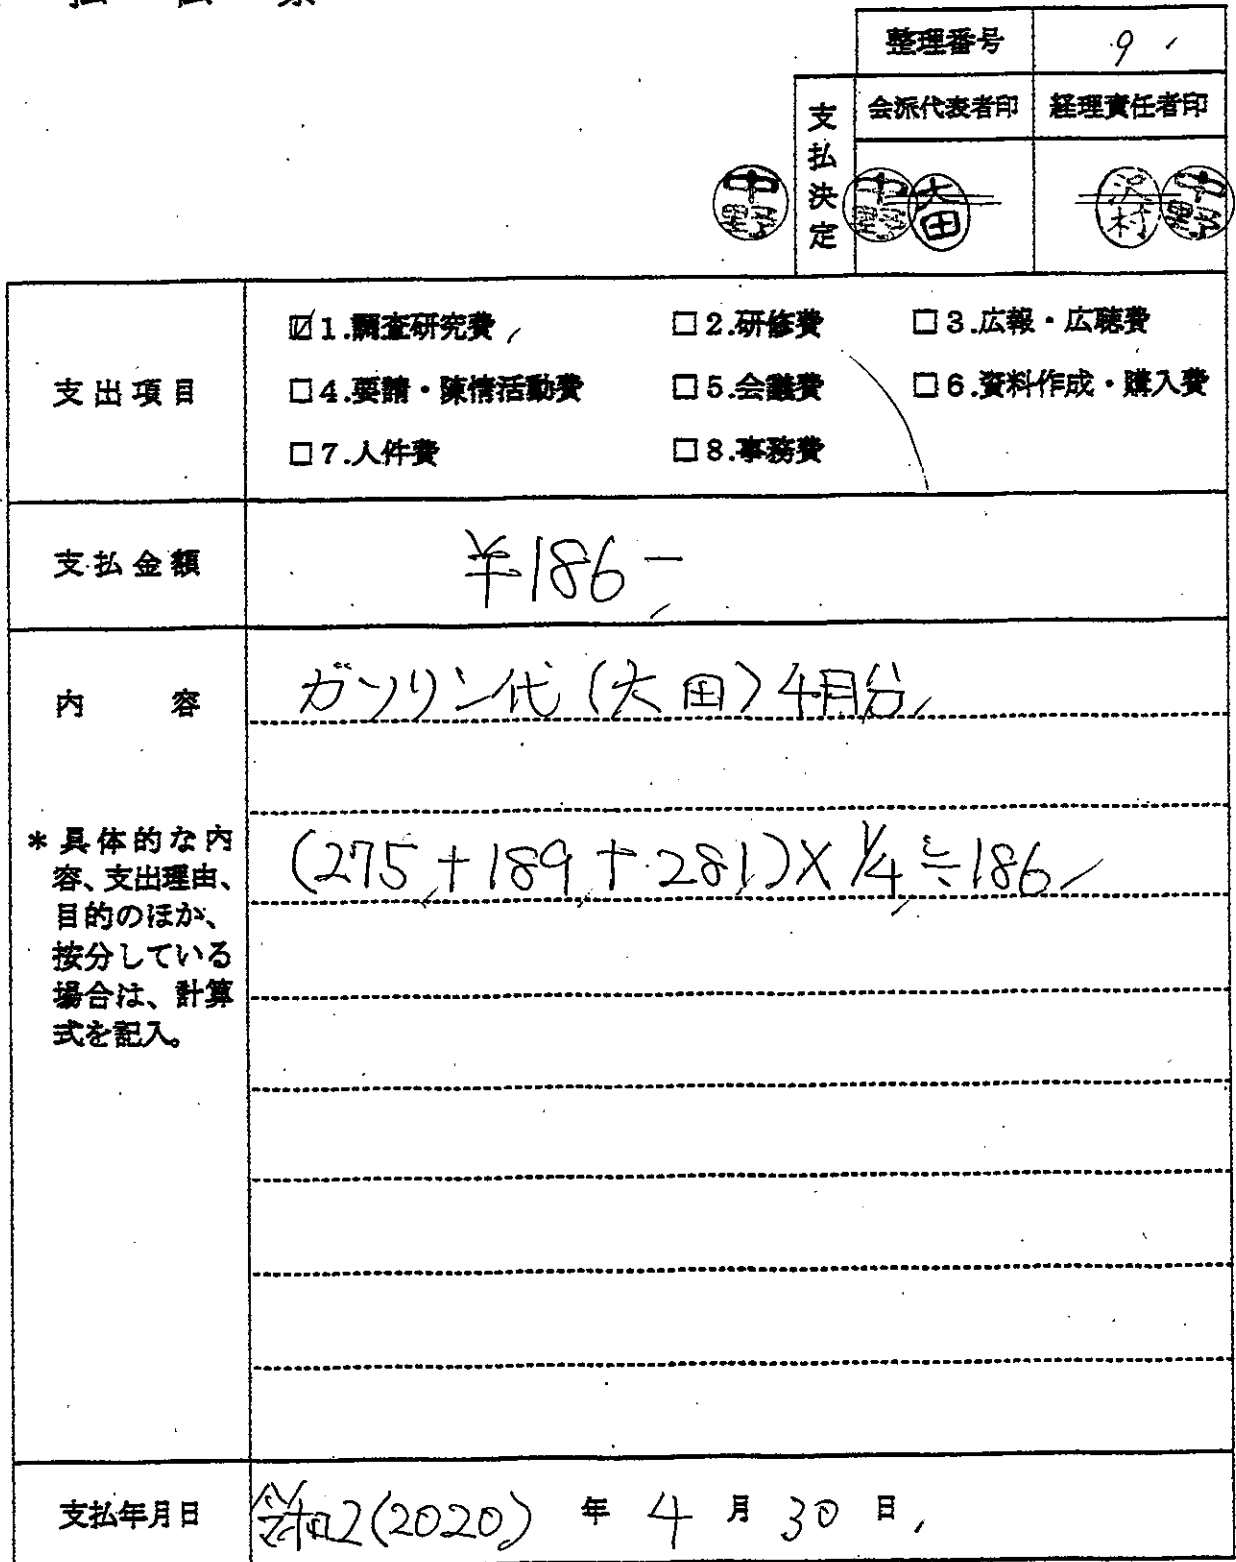 払伝票
整理番号 9
支払決定
会派代表者印 経理責任者印
中野 中野 大田 沢村 中野
支出項目
☑1.調査研究費 □2.研修費 □3.広報・広聴費
□4.要請・陳情活動費 □5.会議費 □6.資料作成・購入費
□7.人件費 □8.事務費
支払金額 ¥186-
内容 ガソリン代(大田)4月分
*具体的な内
容、支出理由、
目的のほか、
按分している
場合は、計算
式を記入。
(275+189+281)×1/4≒186
支払年月日 令和2(2020)年4月30日